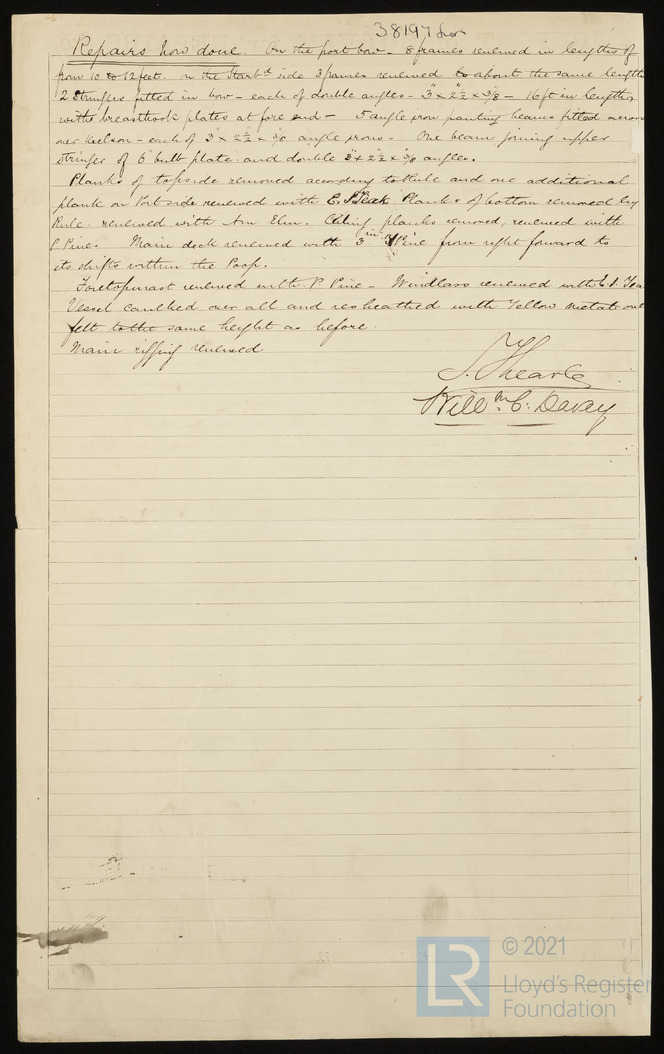 38197 Lon
Repairs now done. On the port bow - 8 frames renewed in lengths of
from 10 to 12 feet. on the Starbd side 3 frames renewed to about the same length
2 Stringers fitted in bow - each of double angles - 3" x 2½" x 3/8 - 16 ft in lengths
with breasthook plates at fore end - 5 angle iron panting beams fitted across
over keelson - each of 3" x 2½ x 3/8 angle irons - One beam joining upper
stringer of 6" bulb plate and double 3" x 2½" x 3/8 angles.
Planks of topside removed according to Rule and one additional
plank on Port side renewed with E. I Teak Planks of bottom removed by
Rule renewed with Am Elm. Ceiling planks removed, renewed with
P. Pine. Main deck renewed with 3 in Y Pine from right forward to
its shifts within the Poop.
Foretopmast renewed with P Pine - Windlass renewed with E. I. Tea
Vessel caulked over all and resheathed with Yellow metal over
felt to the same height as before.
Main rigging renewed
J. Thearle
Willm C: Davey
© 2021
LR
Lloyd's Register
Foundation